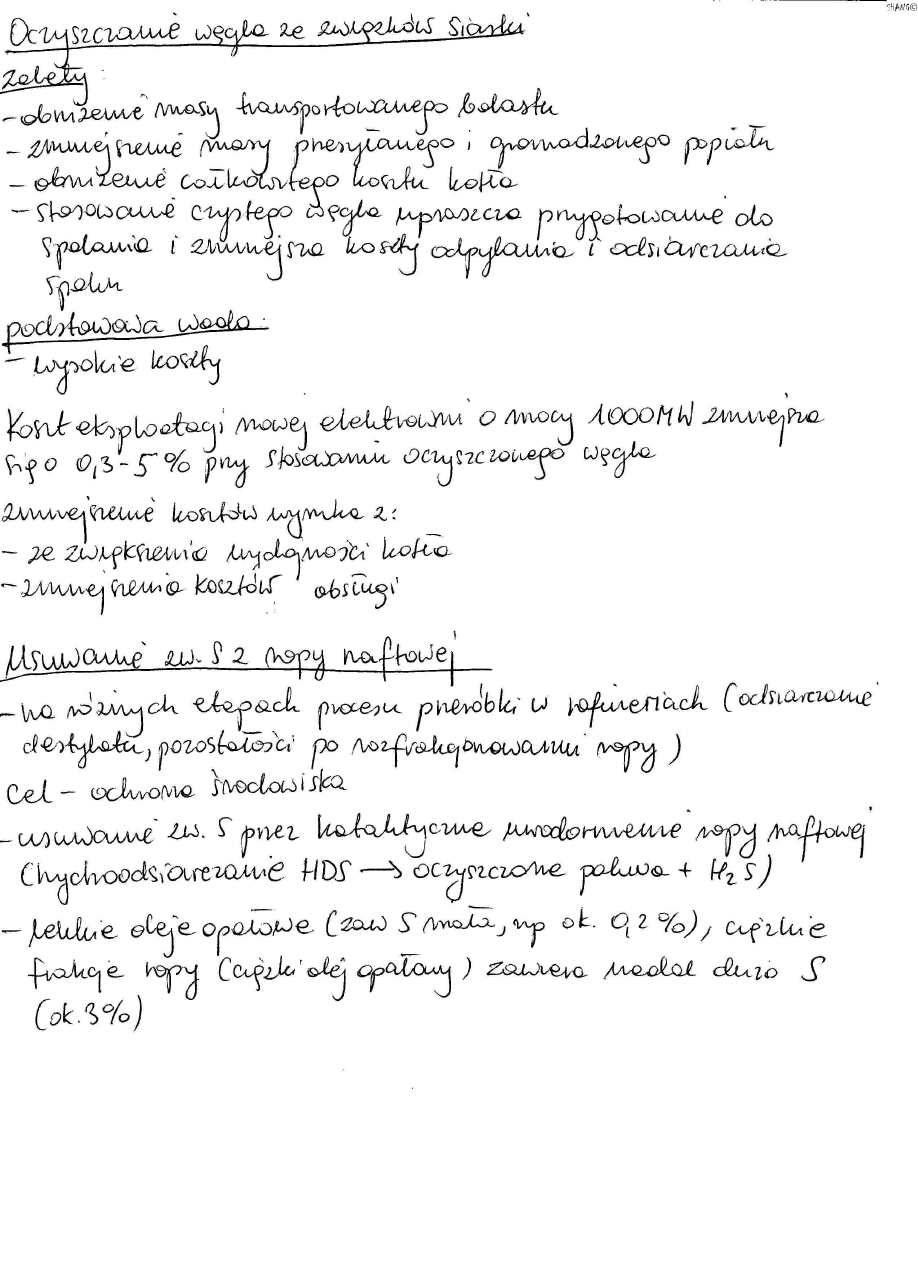 SHANG©
Oczyszczanie węgla ze związków siarki
Zalety:
- obniżenie masy transportowanego balastu
- zmniejszenie masy przesyłanego i gromadzonego popiołu
- obniżenie całkowitego kosztu kotła
- stosowanie czystego węgla upraszcza przygotowanie do
spalania i zmniejsza koszty odpylania i odsiarczania
spalin
podstawowa wada:
- wysokie koszty
Koszt eksploatacji nowej elektrowni o mocy 1000MW zmniejsza
się o 0,3-5% przy stosowaniu oczyszczonego węgla
zmniejszenie kosztów wynika z:
- ze zwiększenia wydajności kotła
- zmniejszenia kosztów obsługi
Usuwanie zw. S z ropy naftowej
- na różnych etapach procesu przeróbki w rafineriach (odsiarczanie
destylatu, pozostałości po rozfrakcjonowaniu ropy)
cel - ochrona środowiska
- usuwanie zw. S przez katalityczne uwodornienie ropy naftowej
(hychoodsiarczanie HDS → oczyszczone paliwa + H₂S)
- lekkie oleje opałowe (zaw S mała, np ok. 0,2%), ciężkie
frakcje ropy (ciężki olej opałowy) zawiera nadal dużo S
(ok. 3%)